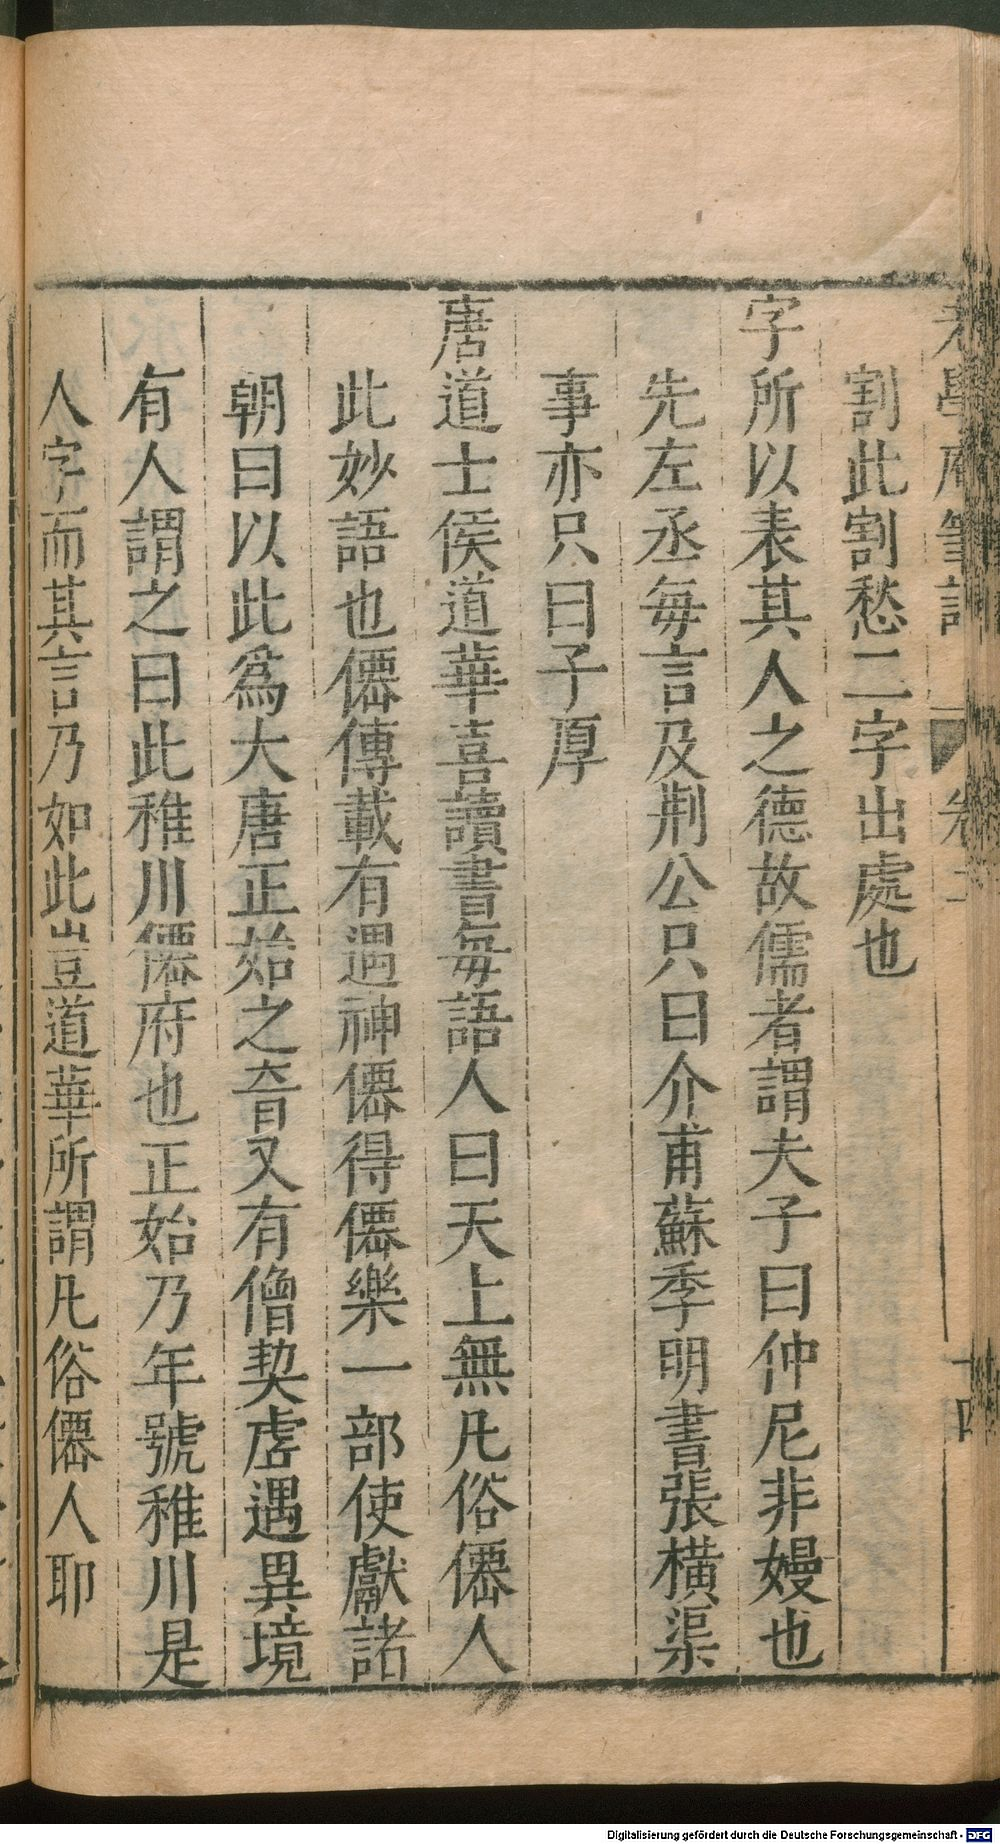 老學庵筆記 卷二 十四
割此割愁二字出處也
字所以表其人之德故儒者謂夫子曰仲尼非嫚也
先左丞每言及荆公只曰介甫蘇季明書張橫渠
事亦只曰子厚
唐道士侯道華喜讀書每語人曰天上無凡俗僊人
此妙語也僊傳載有遇神僊得僊樂一部使獻諸
朝曰以此爲大唐正始之音又有僧契虛遇異境
有人謂之曰此稚川僊府也正始乃年號稚川是
人字而其言乃如此豈道華所謂凡俗僊人耶
Digitalisierung gefördert durch die Deutsche Forschungsgemeinschaft - DFG